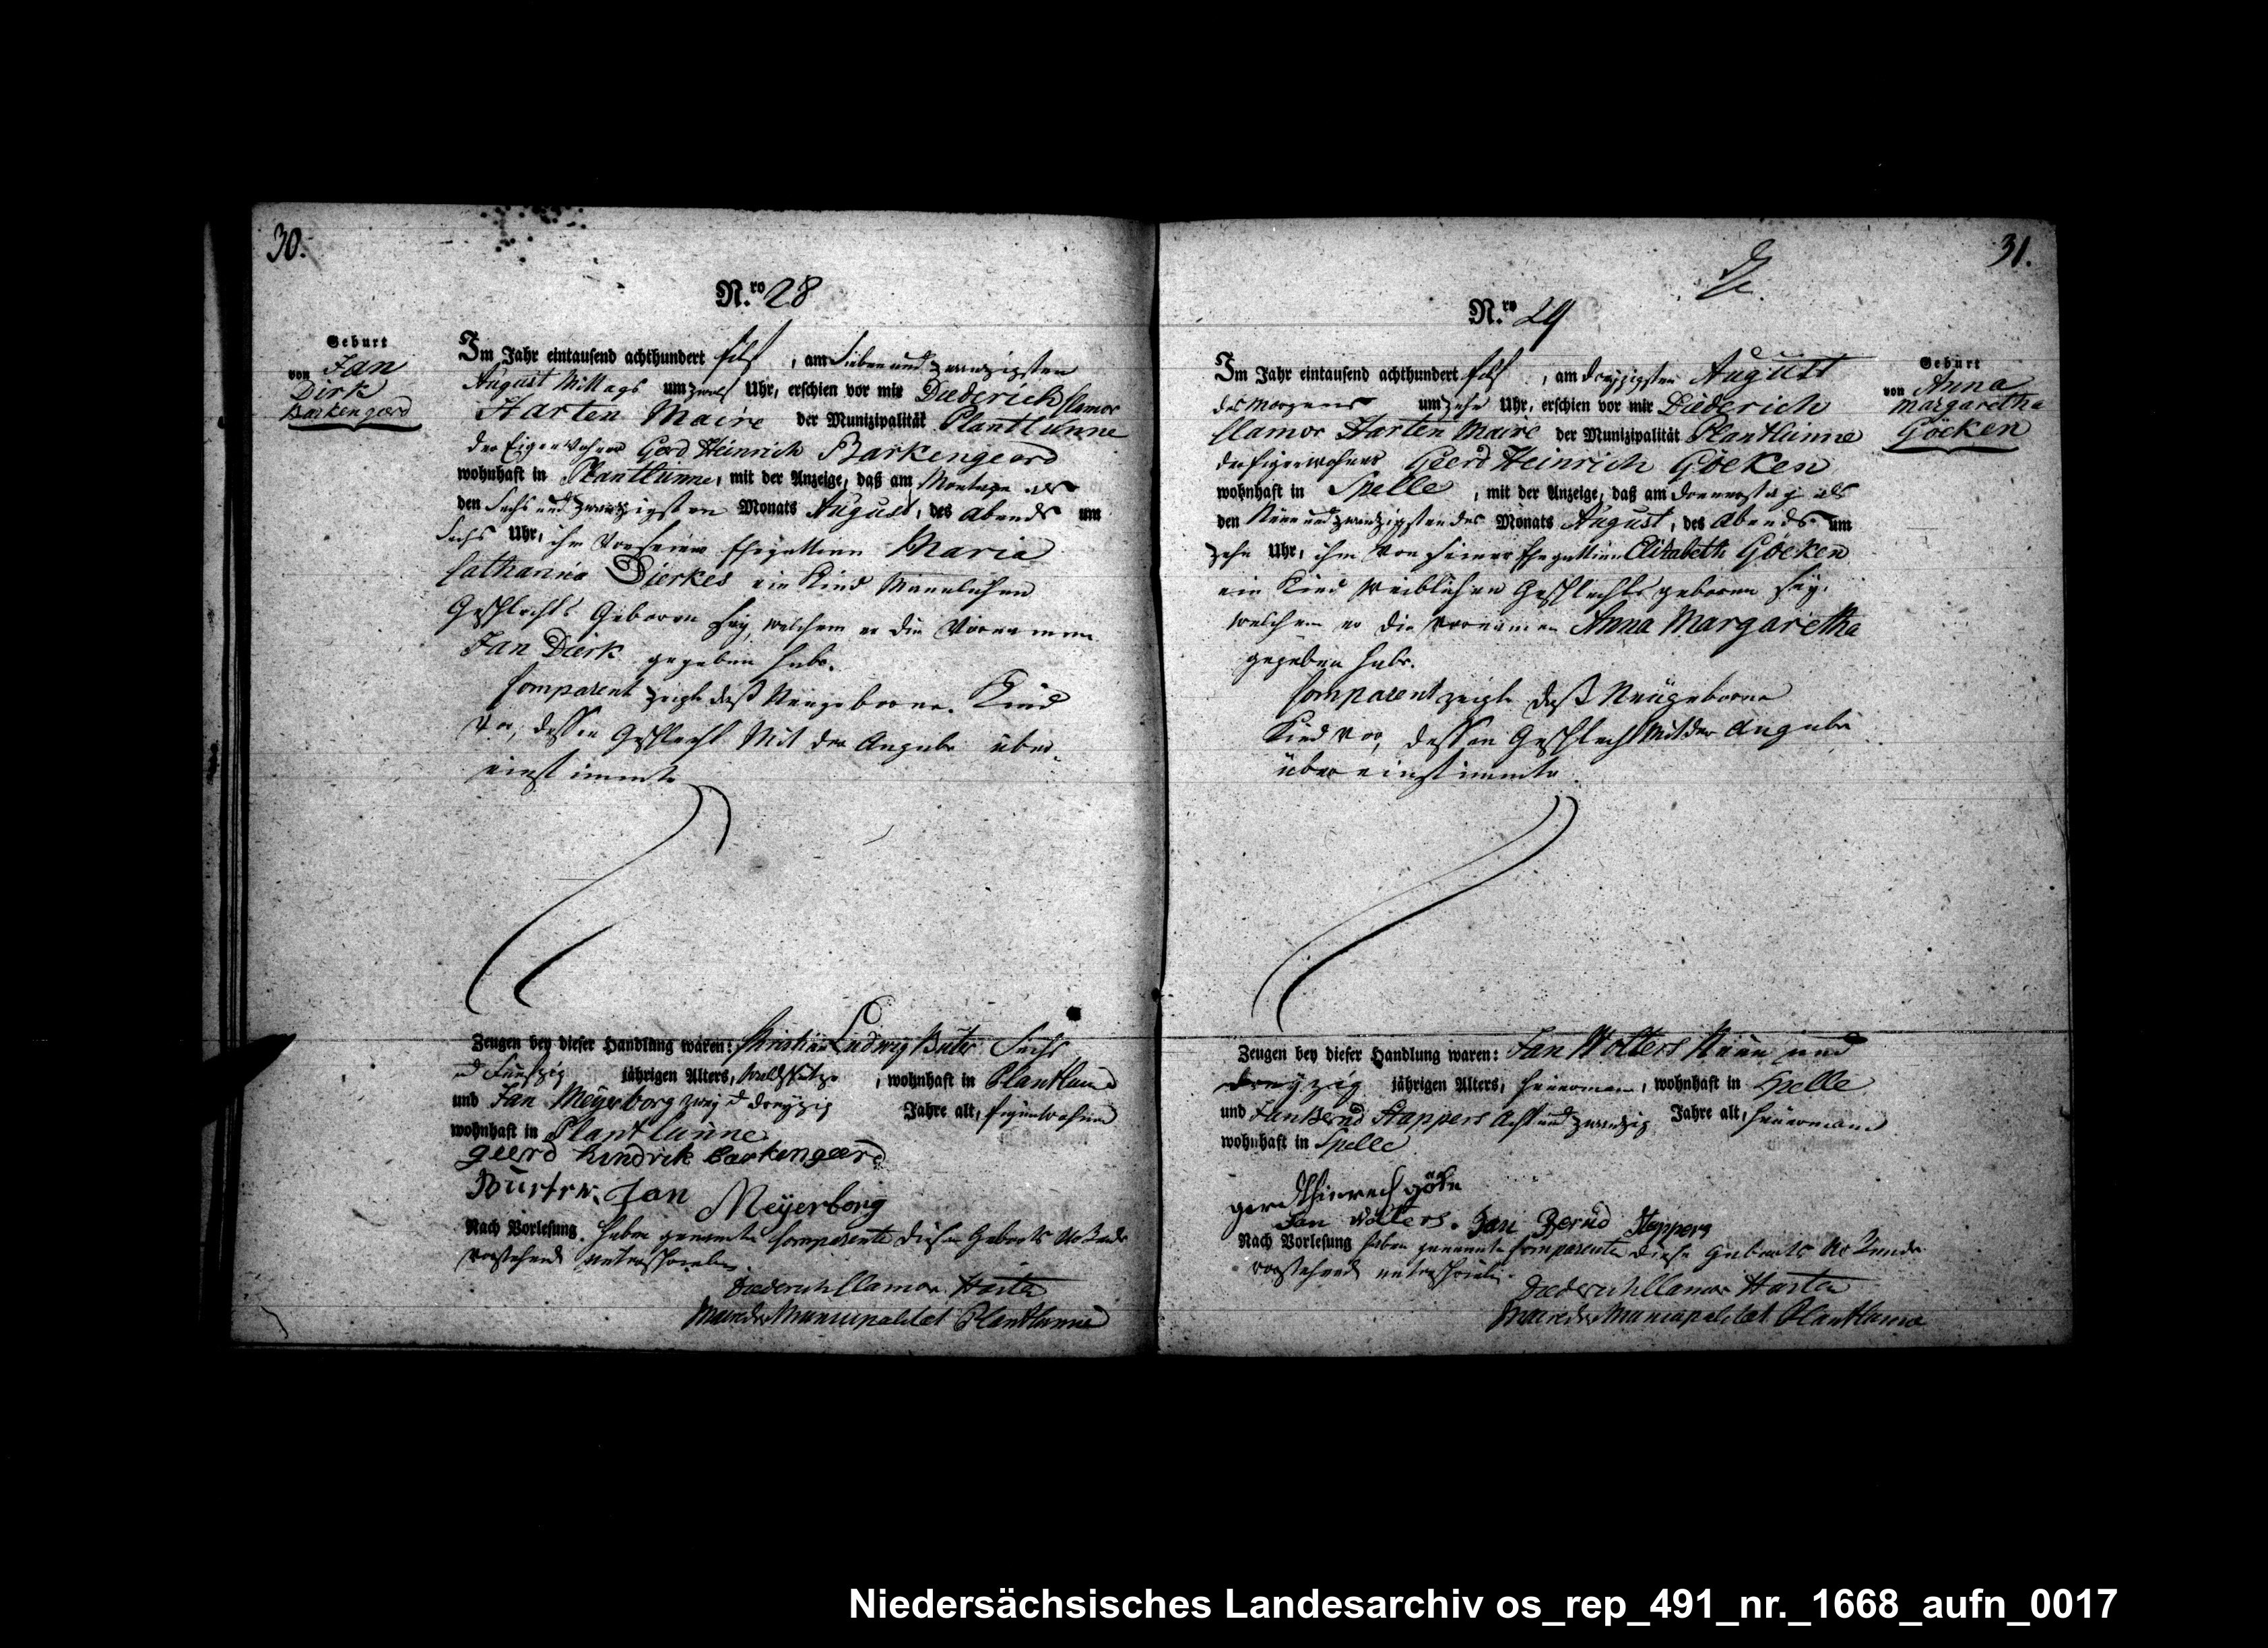 30.
N.ro 28
Geburt
von Jan
Dirk
Barkengeerd
Im Jahr eintausend achthundert eilf, am Sieben und zwanzigsten
August Mittags um zwölf Uhr, erschien vor mir Diederich Clamor
Harten Maire der Munizipalität Plantlünne
der Eigenwohner Gerd Heinrich Barkengeerd
wohnhaft in Plantlünne, mit der Anzeige, daß am Montage als
den Sechs und zwanzigsten Monats August, des Abends um
Sechs Uhr, ihm von seiner Ehegattinn Maria
Catharina Dierkes ein Kind Männlichen
Geschlechts Geboren sey, welchem er die Vornamen
Jan Dierk gegeben habe.
Comparent zeigte daß Neugeborne Kind
vor, dessen Geschlecht Mit der Angabe über-
einstimmte
Zeugen bey dieser Handlung waren: Christian Ludwig Sechs
und Funfzig jährigen Alters, wohnhaft in Plantlünne
und Jan Meyerborg zwey und dreyzig Jahre alt, Eigenwohner
wohnhaft in Plantlünne
geerd hindrik barkengeerd
Jan Meyerborg
Nach Vorlesung haben genannte Comparenten diesen Geburts Act
vorstehend unterschrieben.
Diederich Clamor Harten
Maire der Municipalitæt Plantlünne
31.
N.ro 29
Geburt
von Anna
Margaretha
Göcken
Im Jahr eintausend achthundert eilf, am dreyzigsten August
des Morgens um zehn Uhr, erschien vor mir Diederich
Clamor Harten Maire der Munizipalität Plantlünne
der Eigenwohner Geerd Heinrich Göcken
wohnhaft in Spelle, mit der Anzeige, daß am Donnerstag als
den Neun und zwanzigsten des Monats August, des Abends um
zehn Uhr, ihm von seiner Ehegattinn Elisabeth Göcken
ein Kind Weiblichen Geschlechts geboren sey,
welchem er die Vornamen Anna Margaretha
gegeben habe.
Comparent zeigte daß Neugeborne
Kind vor, dessen Geschlecht mit der Angabe
übereinstimmte
Zeugen bey dieser Handlung waren: Jan Wolters Neun und
dreyzig jährigen Alters, Heuermann, wohnhaft in Spelle
und Jan Bernd Stappers Acht und zwanzig Jahre alt, Heuermann
wohnhaft in Spelle
Jan Wolters. Jan Bernd Steppers
Nach Vorlesung haben genannte Comparenten diese Geburts
vorstehend unterschrieben.
Diederich Clamor Harten
Maire der Municipalitæt Plantlünne
Niedersächsisches Landesarchiv os_rep_491_nr._1668_aufn_0017